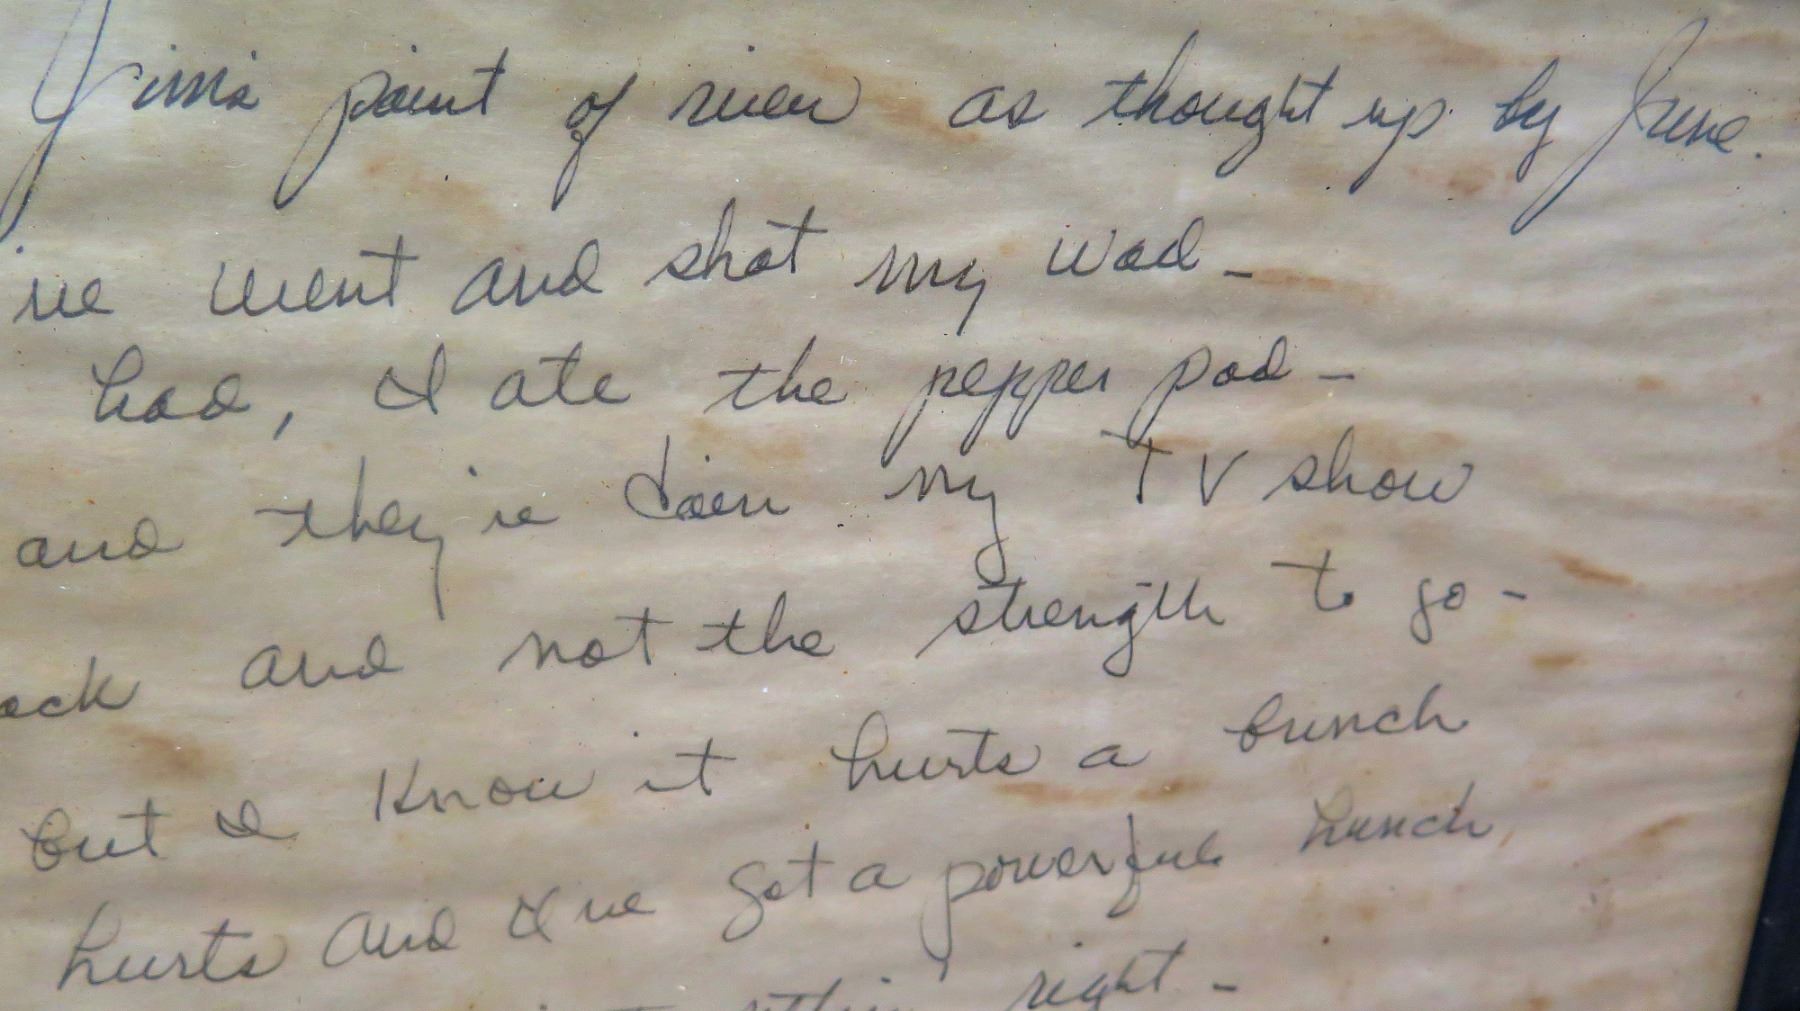 Jim's point of view as thought up by June.
've went and shot my wad -
had, I ate the pepper pod -
and they're doin my TV show
ack and not the strength to go -
but I know it hurts a bunch
hurts and I've got a powerful hunch
right -